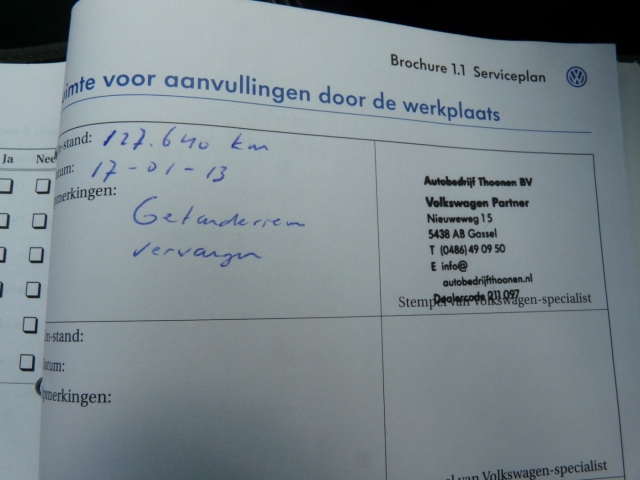 Brochure 1.1 Serviceplan
imte voor aanvullingen door de werkplaats
Ja Nee
n-stand: 127.640 km
tum: 17-01-13
merkingen:
Getanderiem
vervangen
Autobedrijf Thoonen BV
Volkswagen Partner
Nieuweweg 15
5438 AB Gassel
T (0486) 49 09 50
E info@
autobedrijfthoonen.nl
Dealercode 211 097
Stempel van Volkswagen-specialist
m-stand:
atum:
pmerkingen:
el van Volkswagen-specialist